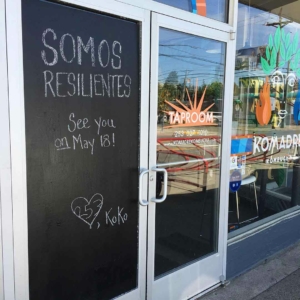 SOMOS
RESILIENTES
See you
on May 18!
253, KoKo
TAPROOM
KOMADRE